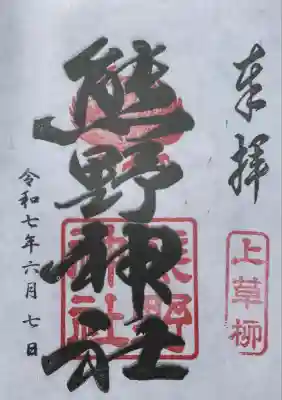 奉拝
上草柳
熊野神社
熊野神社
令和七年六月七日